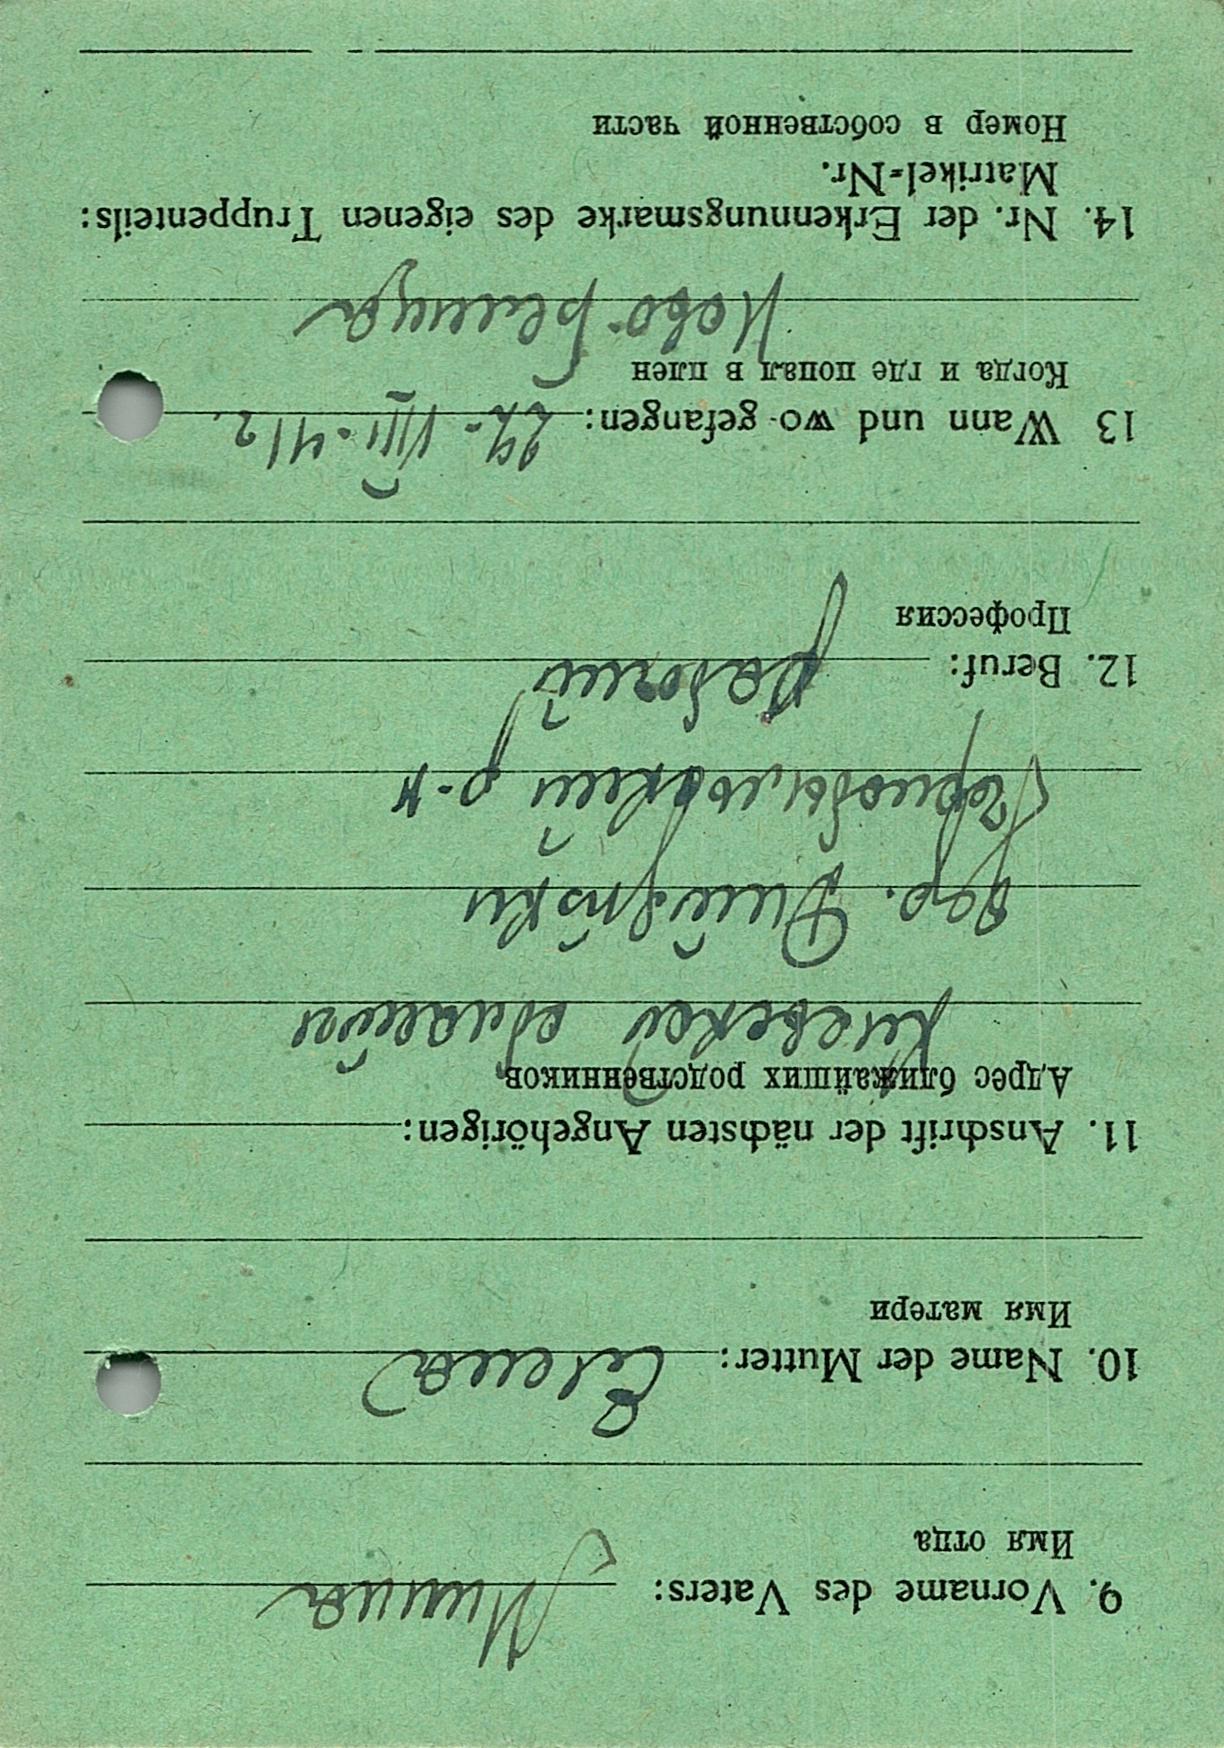 9. Vorname des Vaters: Миша
Имя отца
10. Name der Mutter: Елена
Имя матери
11. Anschrift der nächsten Angehörigen:
Адрес ближайших родственников
Киевской области
дер.
Чернобыльский р-н
12. Beruf: рабочий
Профессия
13 Wann und wo gefangen: 24-VIII-41 г.
Когда и где попал в плен
Ново-Белица
14. Nr. der Erkennungsmarke des eigenen Truppenteils:
Matrikel-Nr.
Номер в собственной части